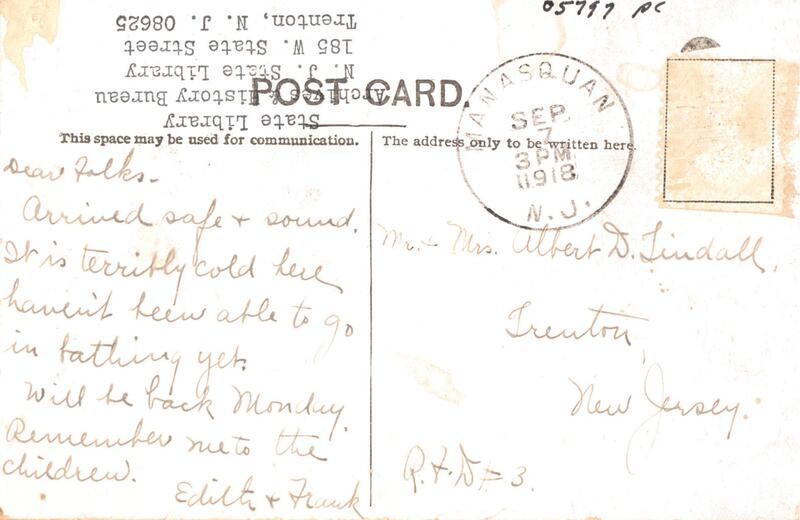 05797 PC
State Library
Archives & History Bureau
N. J. State Library
185 W. State Street
Trenton, N. J. 08625
POST CARD.
MANASQUAN
SEP
7
3 PM
1918
N. J.
This space may be used for communication.
The address only to be written here.
Dear Folks-
Arrived safe + sound.
It is terribly cold here
haven't been able to go
in bathing yet.
Will be back Monday.
Remember me to the
children.
Edith + Frank
Mr. + Mrs. Albert D. Tindall,
Trenton,
New Jersey.
R.F.D # 3.